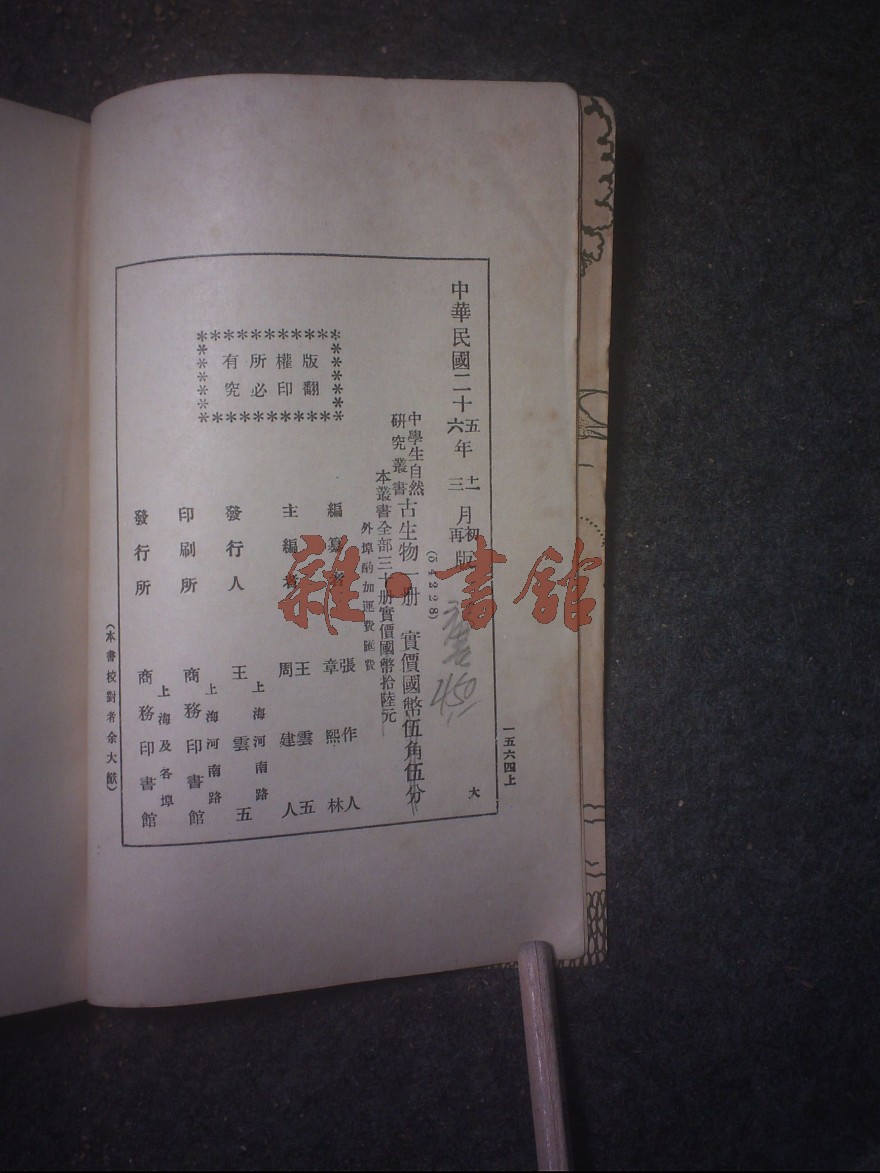 一五六四上
中華民國二十五年十二月初版
六年三月再版
(54228)
中學生自然研究叢書 古生物一册
實價國幣伍角伍分
本叢書全部三十册實價國幣拾陸元
外埠酌加運費匯費
大
編纂者 張作人 章熙林
主編者 王雲五 周建人
發行人 王雲五
上海河南路
印刷所 商務印書館
上海河南路
發行所 商務印書館
上海及各埠
版權所有
翻印必究
(本書校對者余大猷)
450
雜·書館